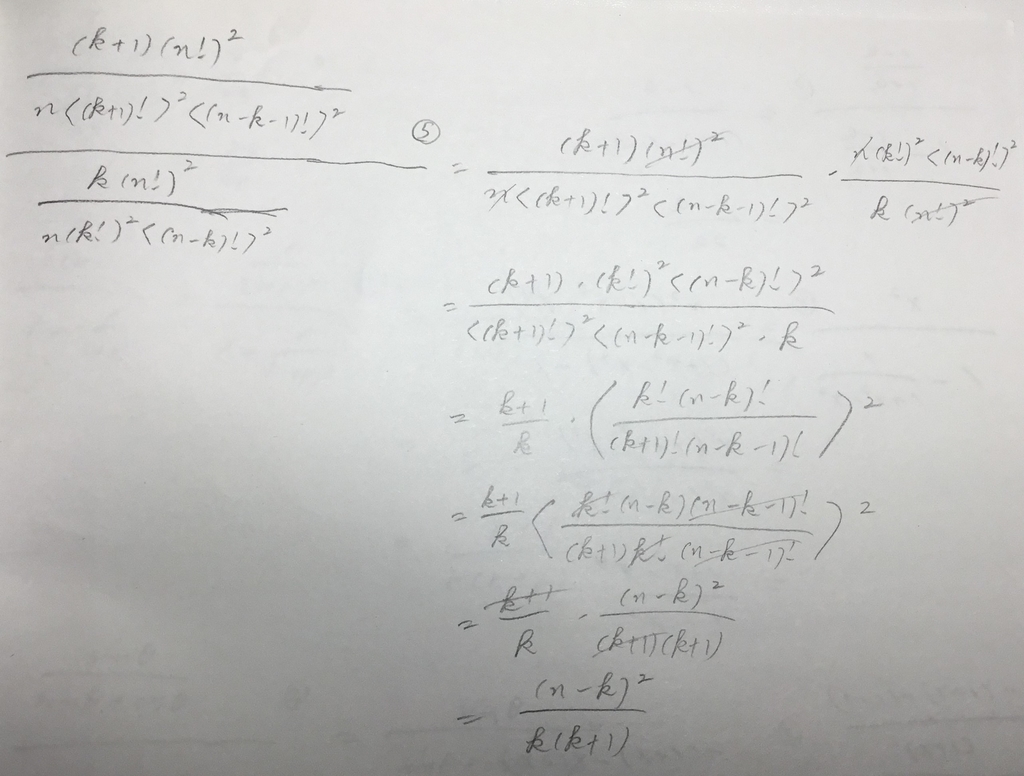 (k+1)(n!)²
n<(k+1)!>²<(n-k-1)!>²
k(n!)²
n(k!)²<(n-k)!>²
⑤
= (k+1)(n!)² / n<(k+1)!>²<(n-k-1)!>² · n(k!)²<(n-k)!>² / k(n!)²
= (k+1)·(k!)²<(n-k)!>² / <(k+1)!>²<(n-k-1)!>²·k
= k+1 / k · (k!(n-k)! / (k+1)!(n-k-1)!)²
= k+1 / k <k!(n-k)(n-k-1)! / (k+1)k!(n-k-1)!>²
= k+1 / k · (n-k)² / (k+1)(k+1)
= (n-k)² / k(k+1)